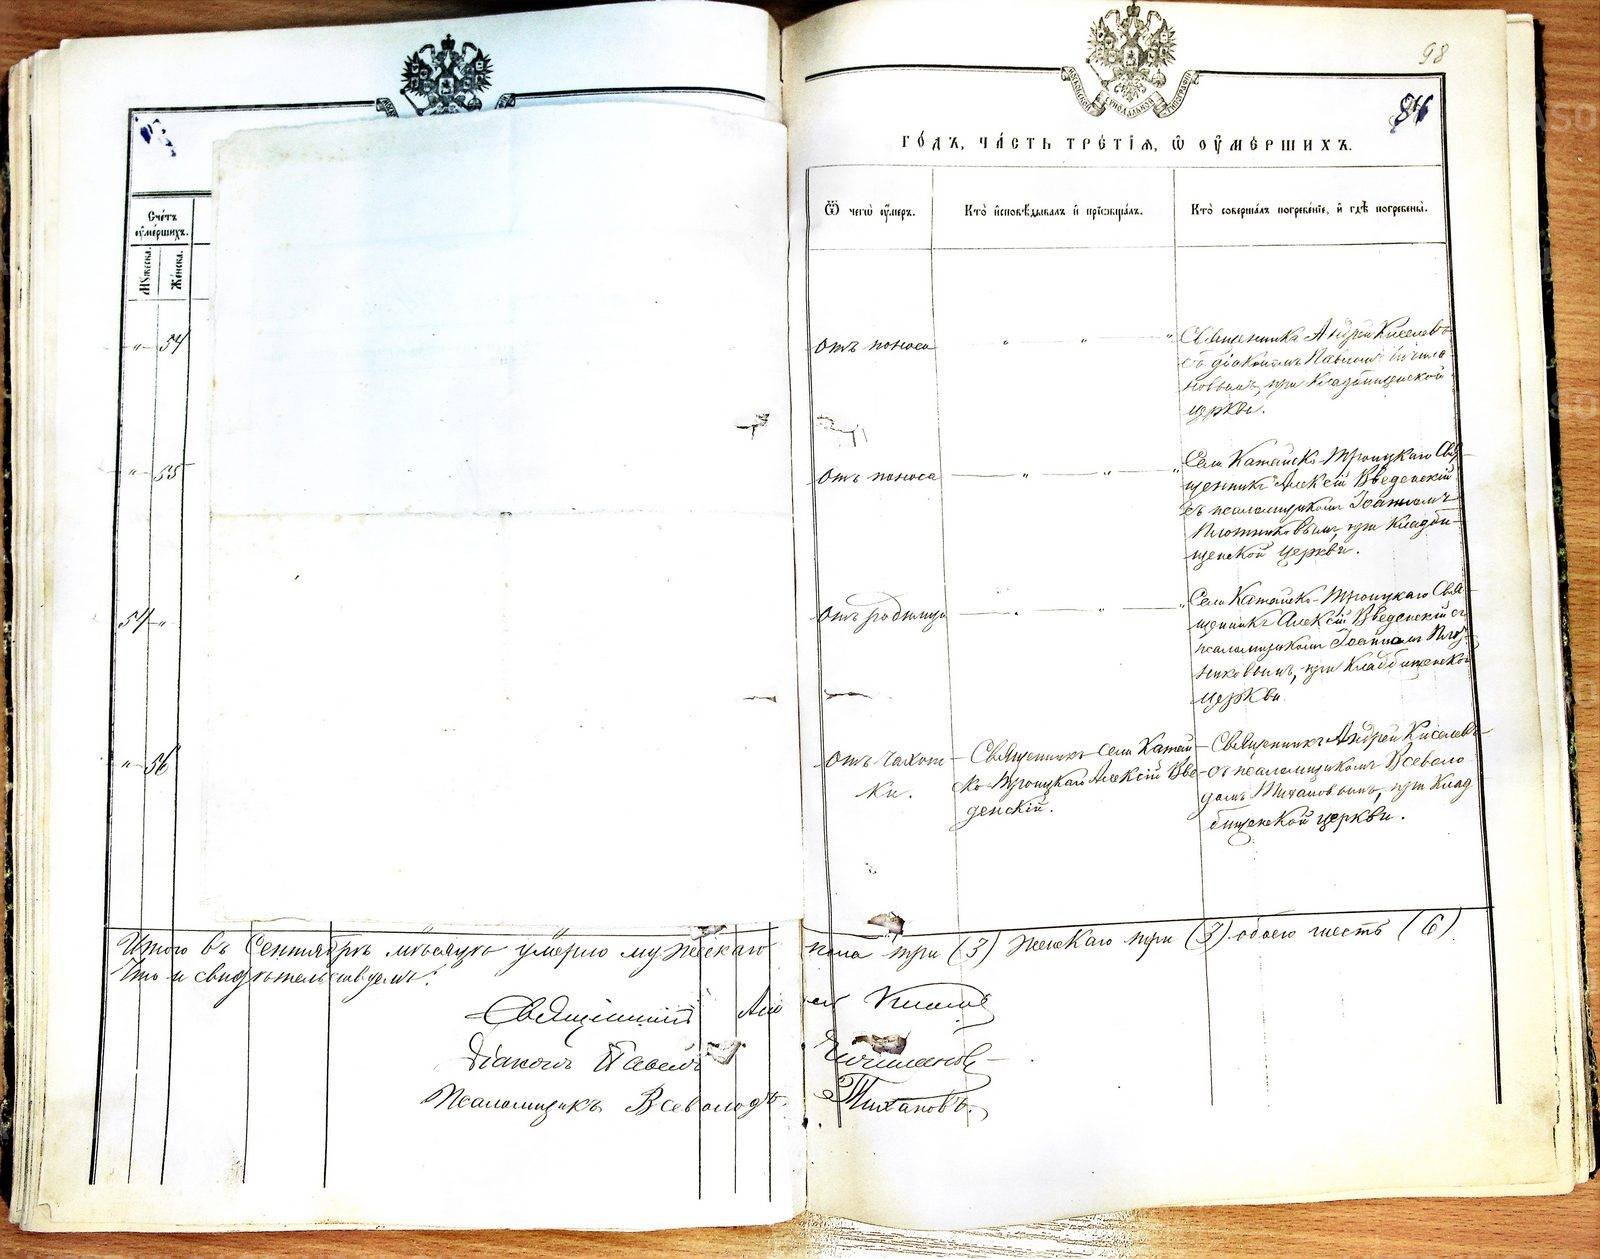 98
84
МОСКОВСКОЙ СѴНОДАЛЬНОЙ ТИПОГРАФІИ
ГОДЪ, ЧАСТЬ ТРЕТІЯ, Ѿ ОУМЕРШИХЪ.
Счетъ оумершихъ.
Мужеска. Женска.
Ѿ чегѡ оумеръ.
Кто исповѣдывалъ и пріобщалъ.
Кто совершалъ погребеніе, и гдѣ погребены.
„ 54
отъ поноса
„ „ „
Священникъ Андрей Киселевъ
съ діакономъ Павломъ
новымъ, при Кладбищенской
церкви.
„ 55
отъ поноса
„ „ „
Села Катайско-Троицкаго Свя-
щенникъ Алексій Введенскій
съ псаломщикомъ Іоанномъ
Плотниковымъ, при Кладби-
щенской церкви.
54 „
отъ родимца
„ „ „
Села Катайско-Троицкаго Свя-
щенникъ Алексій Введенскій съ
псаломщикомъ Іоанномъ Плот-
никовымъ, при Кладбищенской
церкви
„ 56
отъ чахот-
ки.
Священникъ села Катай-
ско-Троицкаго Алексій Вве-
денскій.
Священникъ Андрей Киселевъ
съ псаломщикомъ Всеволо
домъ Тихановымъ, при Клад
бищенской церкви.
Итого въ Сентябрѣ мѣсяцѣ умерло мужескаго пола три (3) женскаго три (3) обоего шесть (6).
Что и свидѣтельствуемъ:
Священникъ Киселев
Діаконъ Павелъ
Псаломщикъ Всеволодъ Тихановъ.